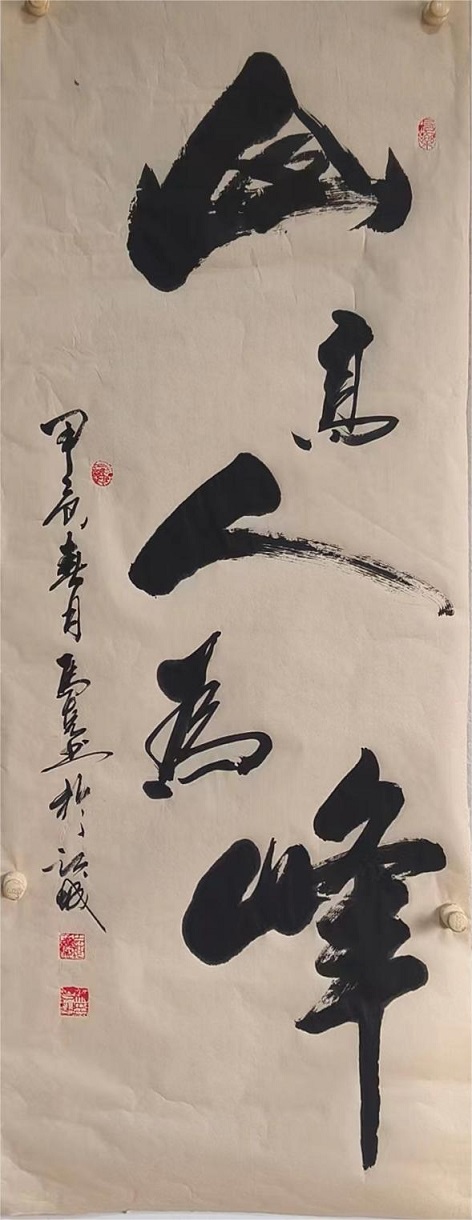 山高人为峰
甲辰春月马